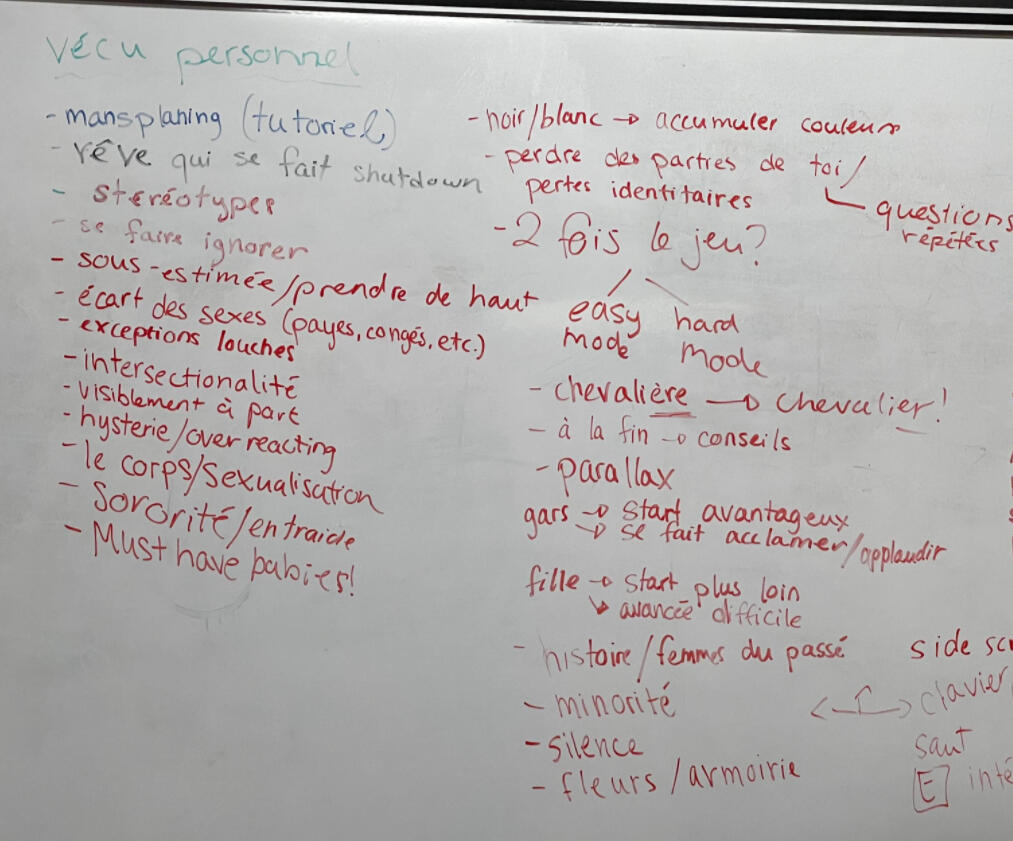 vécu personnel
- mansplaning (tutoriel)
- rêve qui se fait shutdown
- stéréotypes
- se faire ignorer
- sous-estimée/prendre de haut
- écart des sexes (payes, congés, etc.)
- exceptions louches
- intersectionalité
- visiblement à part
- hysterie/over reacting
- le corps/sexualisation
- Sororité/entraide
- Must have babies!
- noir/blanc → accumuler couleurs
- perdre des parties de toi/
pertes identitaires
questions
répétées
- 2 fois le jeu?
easy mode
hard mode
- chevalière → chevalier!
- à la fin → conseils
- parallax
gars → start avantageux
→ se fait acclamer/applaudir
fille → start plus loin
↳ avancée difficile
- histoire/femmes du passé
- minorité
- silence
- fleurs/armoirie
side
clavier
saut
E